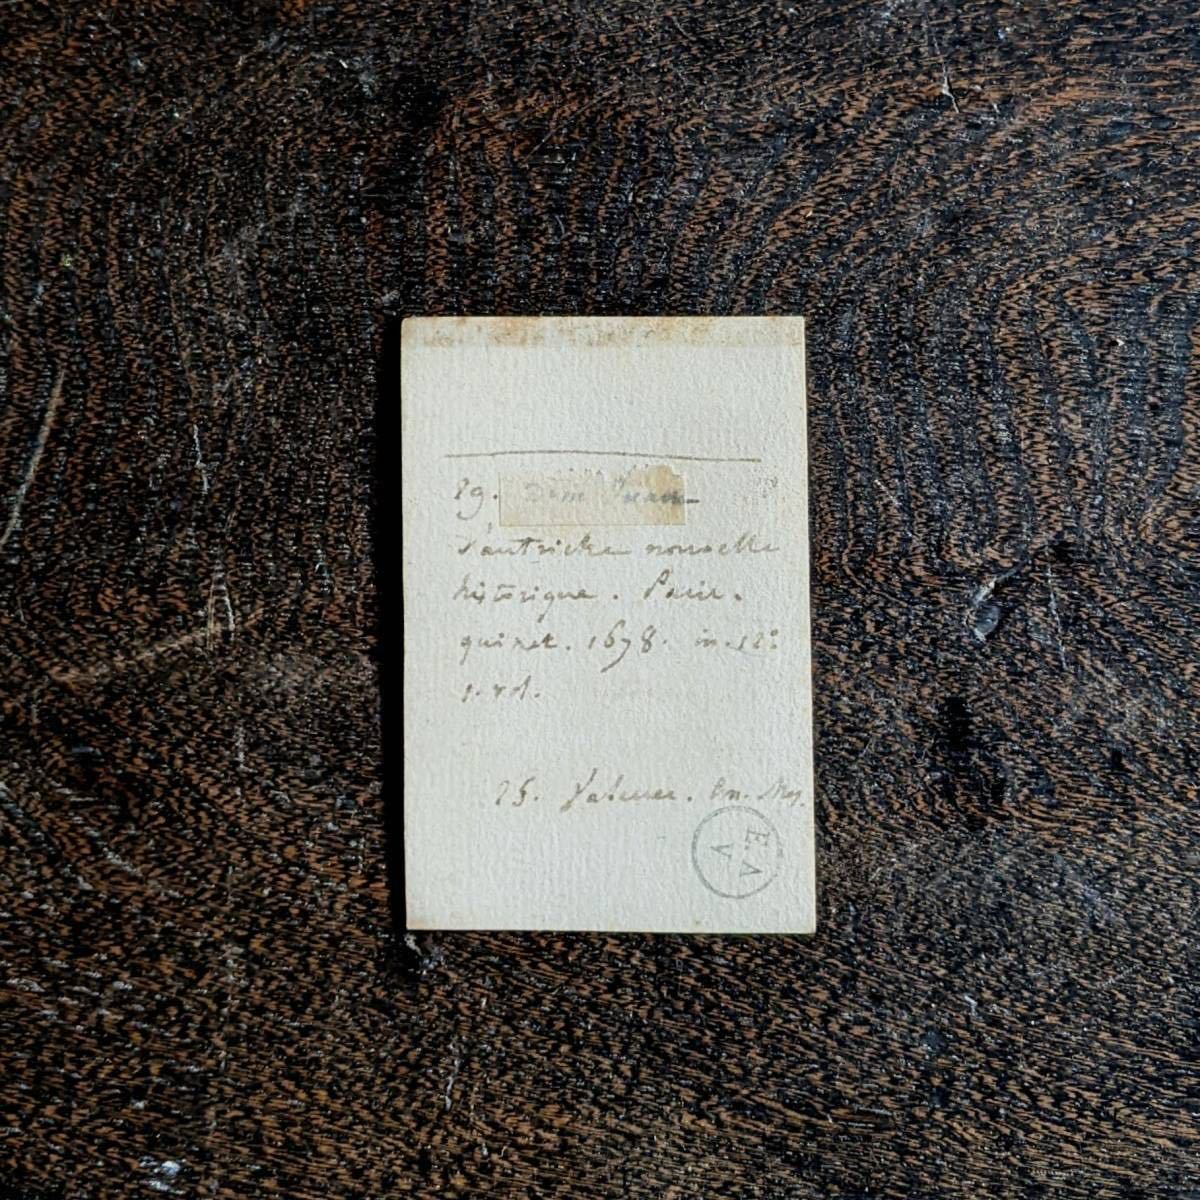 29. Dom Juan
d'autriche nouvelle
historique. Paris.
quinet. 1678. in-12º
1. vol.
25.
E A V